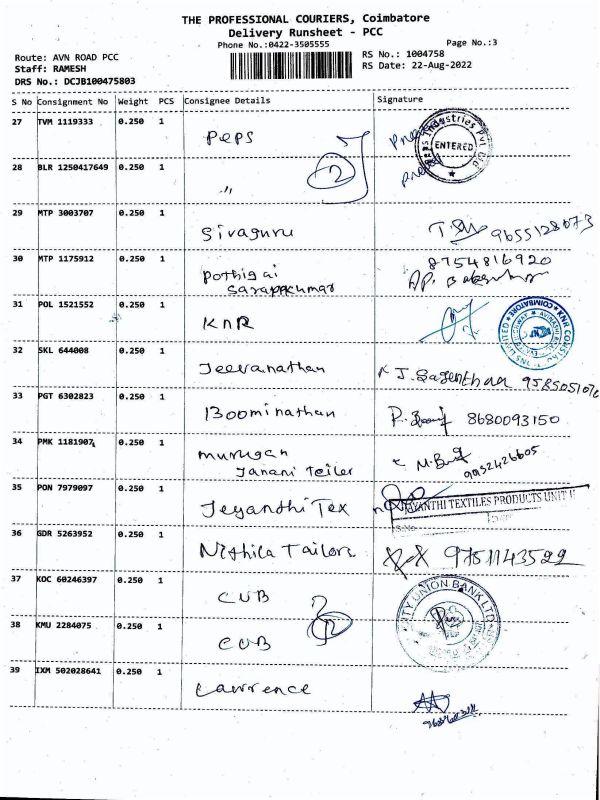 THE PROFESSIONAL COURIERS, Coimbatore
Delivery Runsheet - PCC
Phone No.:0422-3505555
Page No.:3
Route: AVN ROAD PCC
RS No.: 1004758
Staff: RAMESH
RS Date: 22-Aug-2022
DRS No.: DCJB100475803
S No Consignment No Weight PCS Consignee Details Signature
27 TVM 1119333 0.250 1 Peps
ENTERED
28 BLR 1250417649 0.250 1 "
2
29 MTP 3003707 0.250 1 Sivaguru 9655128673
30 MTP 1175912 0.250 1 Pothigai 8754816920
31 POL 1521552 0.250 1 KNR
32 SKL 644008 0.250 1 Jeevanathan
33 PGT 6302823 0.250 1 Boominathan 8680093150
34 PMK 1181907 0.250 1 murugan
Janani Teiler 9952426605
35 PON 7979097 0.250 1 Jeyanthi Tex
YANTHI TEXTILES PRODUCTS UNIT II
36 GDR 5263952 0.250 1 Nithila Tailors 9751143522
37 KOC 60246397 0.250 1 CUB
CITY UNION BANK LTD
38 KMU 2284075 0.250 1 CUB
39 IXM 502028641 0.250 1 Lawrence